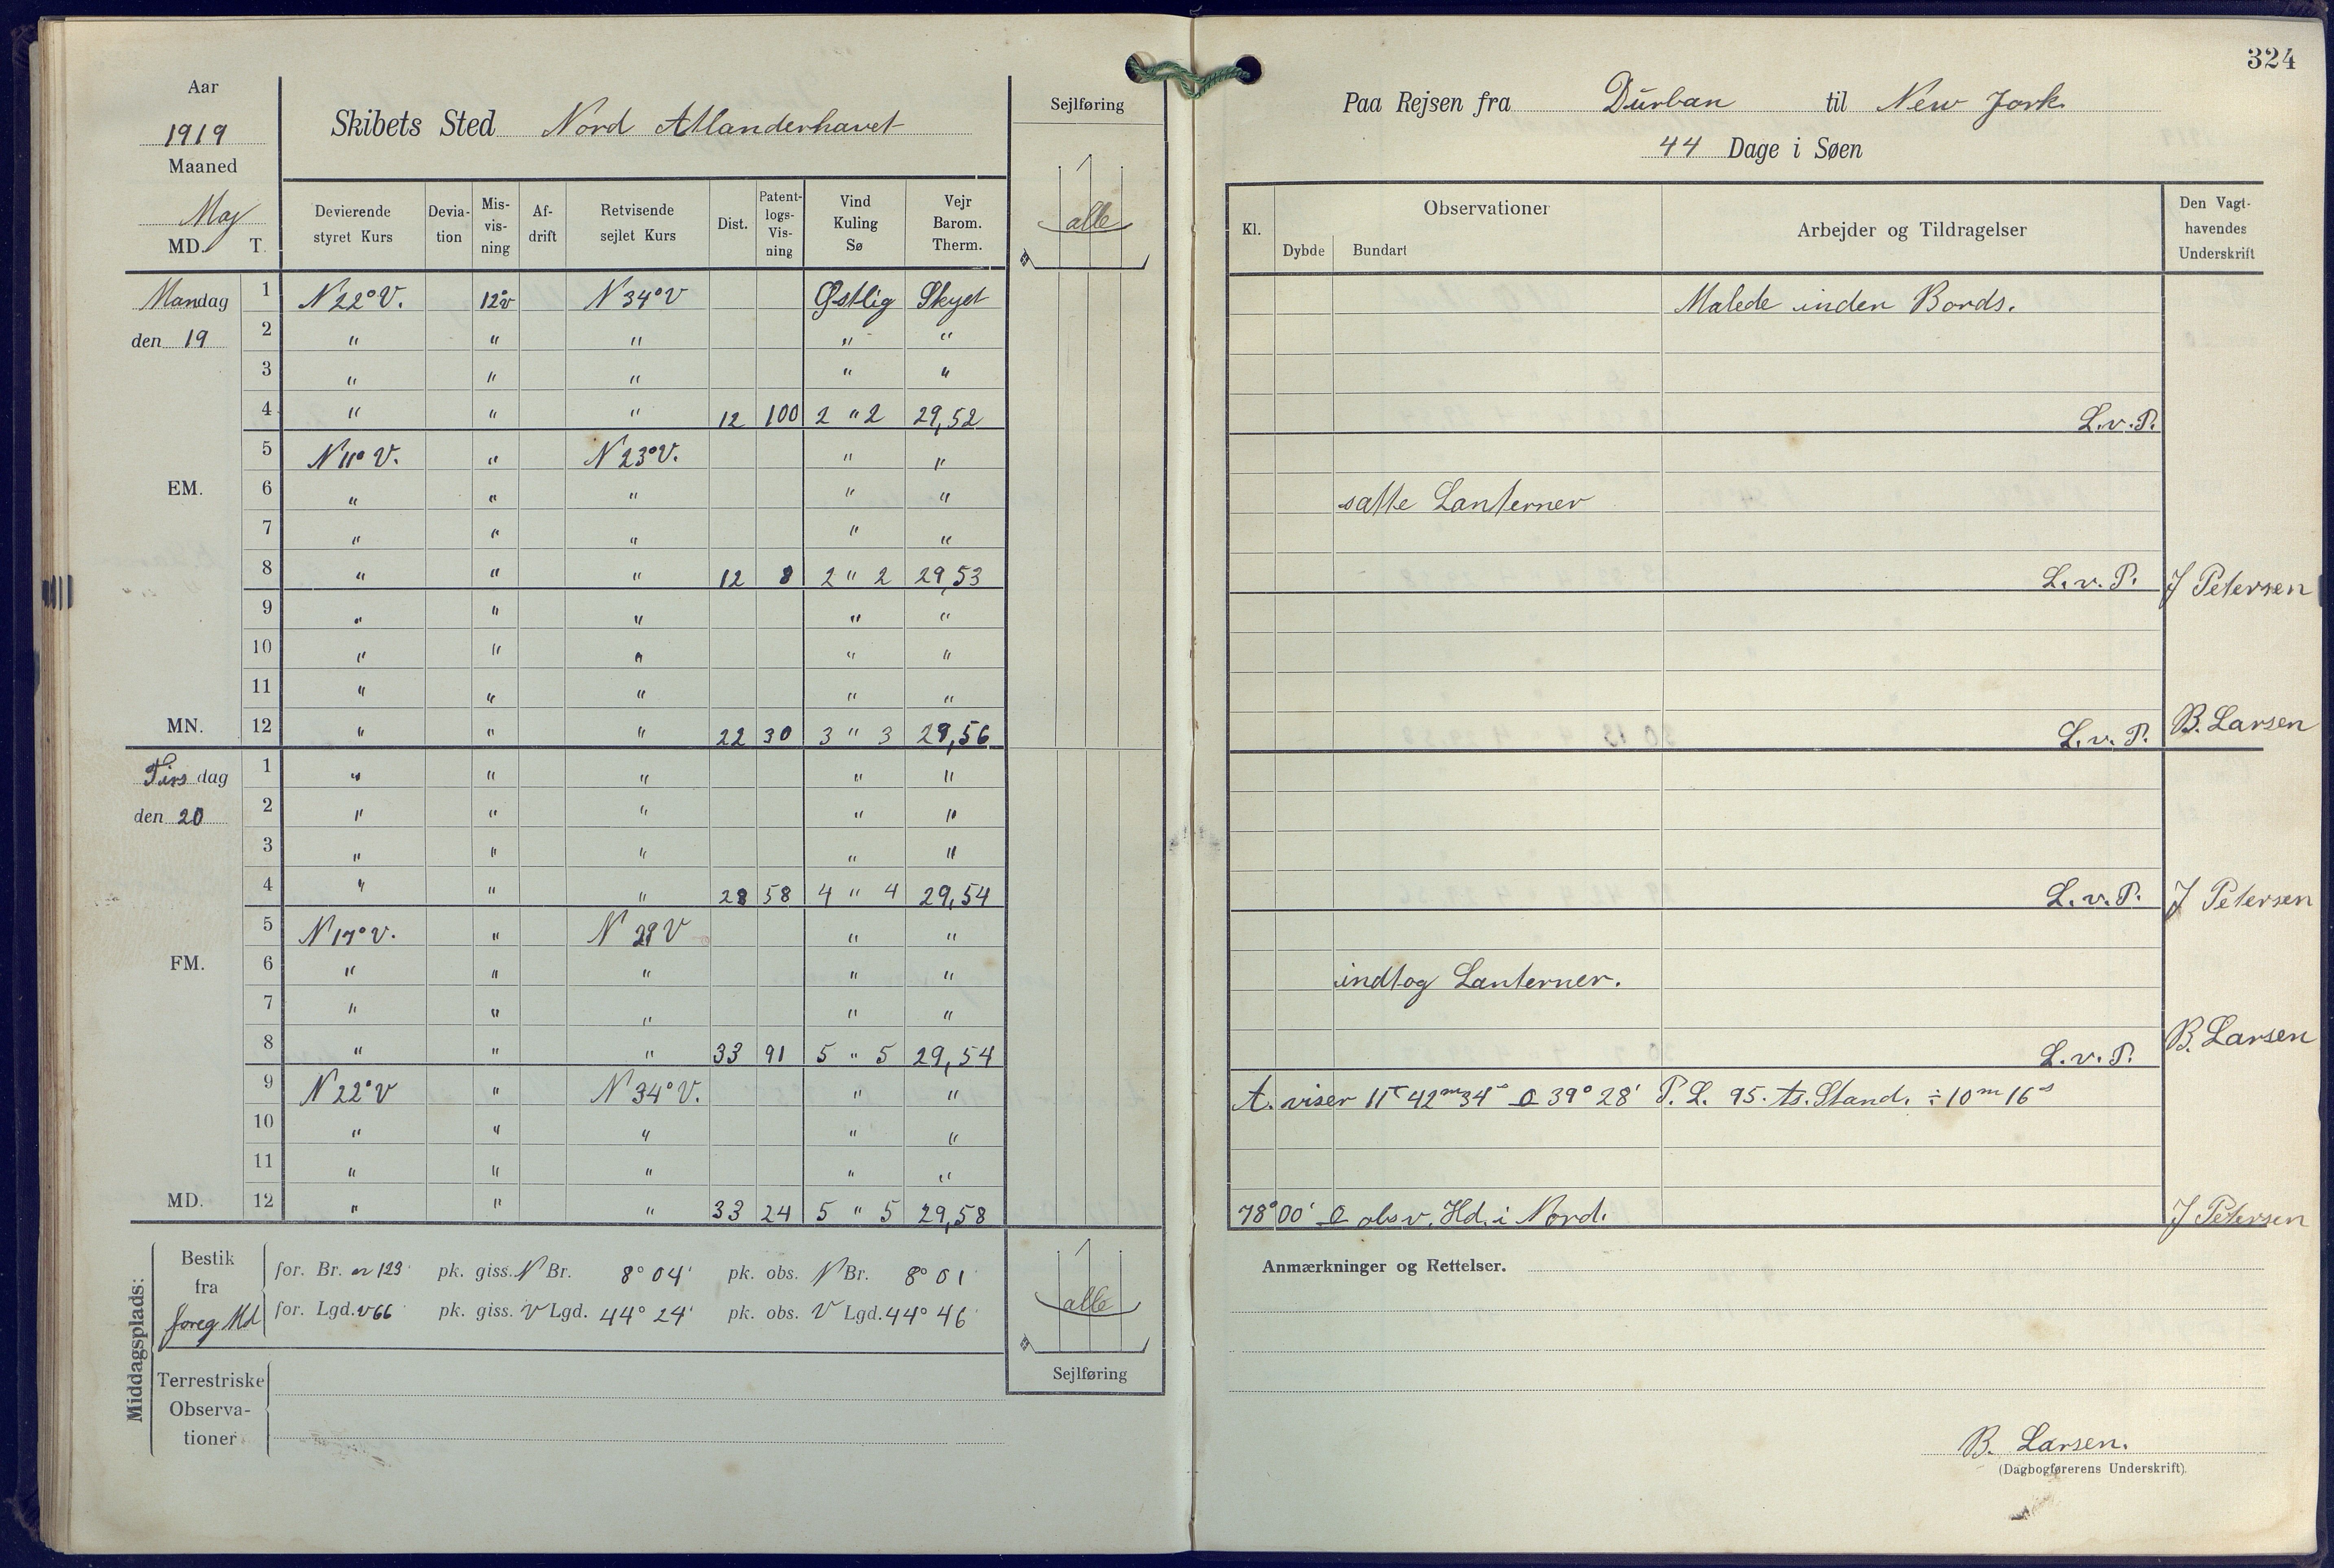 324
Aar
1919
Maaned
Maj
MD. T.
Skibets Sted Nord Atlanderhavet
Sejlføring
alle
Paa Rejsen fra Durban til New Jork.
44 Dage i Søen
Devierende styret Kurs | Devia-tion | Mis-vis-ning | Af-drift | Retvisende sejlet Kurs | Dist. | Patent-logs-Vis-ning | Vind Kuling Sø | Vejr Barom. Therm.
Kl. | Observationer | Dybde | Bundart | Arbejder og Tildragelser | Den Vagt-havendes Underskrift
Mandag 1 N 22° V. 12°v N 34° V Østlig Skyet Malede inden Bords.
den 19 2 " " " " "
3 " " " " "
4 " " " 12 100 2 " 2 29,52 L.v.P.
5 N 11° V. " N 23° V. " "
EM. 6 " " " " " satte Lanterner
7 " " " " "
8 " " " 12 8 2 " 2 29,53 L.v.P. J Petersen
9 " " " " "
10 " " " " "
11 " " " " "
MN. 12 " " " 22 30 3 " 3 29,56 L.v.P. B. Larsen
Tirsdag 1 " " " " "
den 20 2 " " " " "
3 " " " " "
4 " " " 28 58 4 " 4 29,54 L.v.P. J Petersen
5 N 17° V. " N 29 V " "
FM. 6 " " " " " indtog Lanterner.
7 " " " " "
8 " " " 33 91 5 " 5 29,54 L.v.P. B. Larsen
9 N 22° V " N 34° V. " " t. viser 11T 42m 34s O 39° 28' P. L. 95. ts. Stand. ÷ 10m 16s
10 " " " " "
11 " " " " "
MD. 12 " " " 33 24 5 " 5 29,58 78° 00' O obsv. Hd. i Nord. J Petersen
Middagsplads:
Bestik fra foreg Md
for. Br. n 123 pk. giss. N Br. 8° 04' pk. obs. N Br. 8° 01'
for. Lgd. v 66 pk. giss. V Lgd. 44° 24' pk. obs. V Lgd. 44° 46
Terrestriske Observa-tioner
alle
Sejlføring
Anmærkninger og Rettelser.
B. Larsen.
(Dagbogførerens Underskrift)